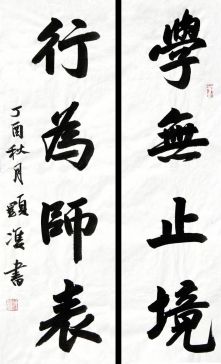 學無止境
行為師表
丁酉秋月顯准書